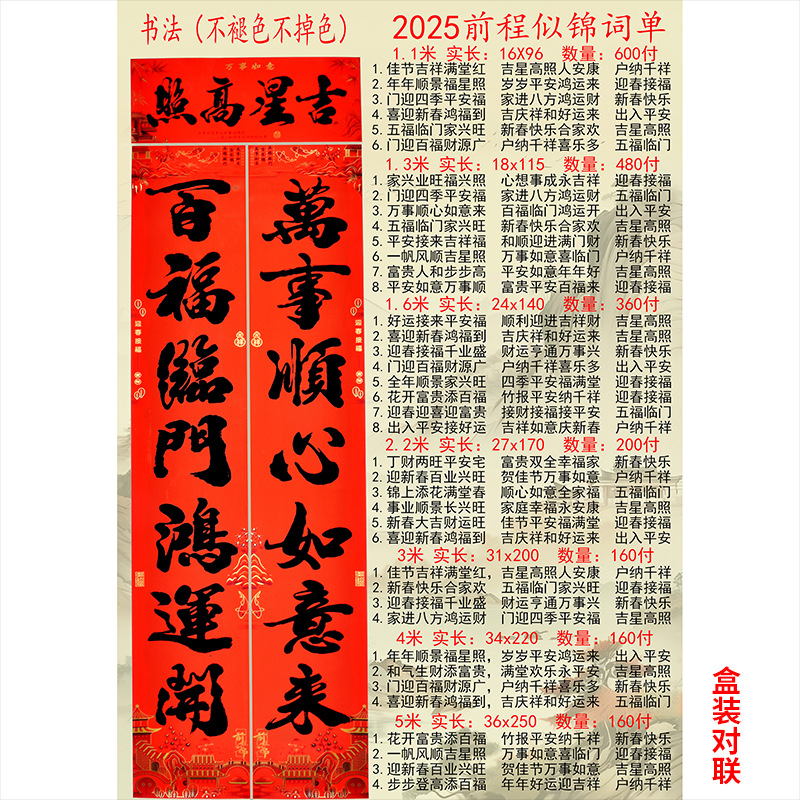 书法（不褪色不掉色）
万事如意
吉星高照
萬事順心如意来
百福臨門鴻運開
迎春接福
迎春接福
2025前程似锦词单
1.1米 实长：16X96 数量：600付
1.佳节吉祥满堂红 吉星高照人安康 户纳千祥
2.年年顺景福星照 岁岁平安鸿运来 迎春接福
3.门迎四季平安福 家进八方鸿运财 新春快乐
4.喜迎新春鸿福到 吉庆祥和好运来 出入平安
5.五福临门家兴旺 新春快乐合家欢 吉星高照
6.门迎百福财源广 户纳千祥喜乐多 五福临门
1.3米 实长：18x115 数量：480付
1.家兴业旺福兴照 心想事成永吉祥 迎春接福
2.门迎四季平安福 家进八方鸿运财 五福临门
3.万事顺心如意来 百福临门鸿运开 出入平安
4.五福临门家兴旺 新春快乐合家欢 吉星高照
5.平安接来吉祥福 和顺迎进满门财 新春快乐
6.一帆风顺吉星照 万事如意喜临门 户纳千祥
7.富贵人和步步高 平安如意年年好 吉星高照
8.平安如意万事顺 富贵平安百福来 迎春接福
1.6米 实长：24x140 数量：360付
1.好运接来平安福 顺利迎进吉祥财 吉星高照
2.喜迎新春鸿福到 吉庆祥和好运来 吉星高照
3.迎春接福千业盛 财运亨通万事兴 新春快乐
4.门迎百福财源广 户纳千祥喜乐多 出入平安
5.全年顺景家兴旺 四季平安福满堂 迎春接福
6.花开富贵添百福 竹报平安纳千祥 迎春接福
7.迎春迎喜迎富贵 接财接福接平安 五福临门
8.出入平安接好运 吉祥如意庆新春 户纳千祥
2.2米 实长：27x170 数量：200付
1.丁财两旺平安宅 富贵双全幸福家 新春快乐
2.迎新春百业兴旺 贺佳节万事如意 出入平安
3.锦上添花满堂春 顺心如意全家福 五福临门
4.事业顺景长兴旺 家庭幸福永安康 户纳千祥
5.新春大吉财运旺 佳节平安福满堂 迎春接福
6.喜迎新春鸿福到 吉庆祥和好运来 吉星高照
3米 实长：31x200 数量：160付
1.佳节吉祥满堂红，吉星高照人安康 户纳千祥
2.新春快乐合家欢 五福临门家兴旺 吉星高照
3.迎春接福千业盛 财运亨通万事兴 新春快乐
4.家进八方鸿运财 门迎四季平安福 迎春接福
4米 实长：34x220 数量：160付
1.年年顺景福星照，岁岁平安鸿运来 出入平安
2.和气生财添富贵，满堂欢乐永平安 吉星高照
3.门迎百福财源广，户纳千祥喜乐多 新春快乐
4.喜迎新春鸿福到，吉庆祥和好运来 五福临门
5米 实长：36x250 数量：160付
1.花开富贵添百福 竹报平安纳千祥 吉星高照
2.一帆风顺吉星照 万事如意喜临门 户纳千祥
3.迎新春百业兴旺 贺佳节万事如意 五福临门
4.步步登高添百福 年年好运迎春来 出入平安
盒装对联